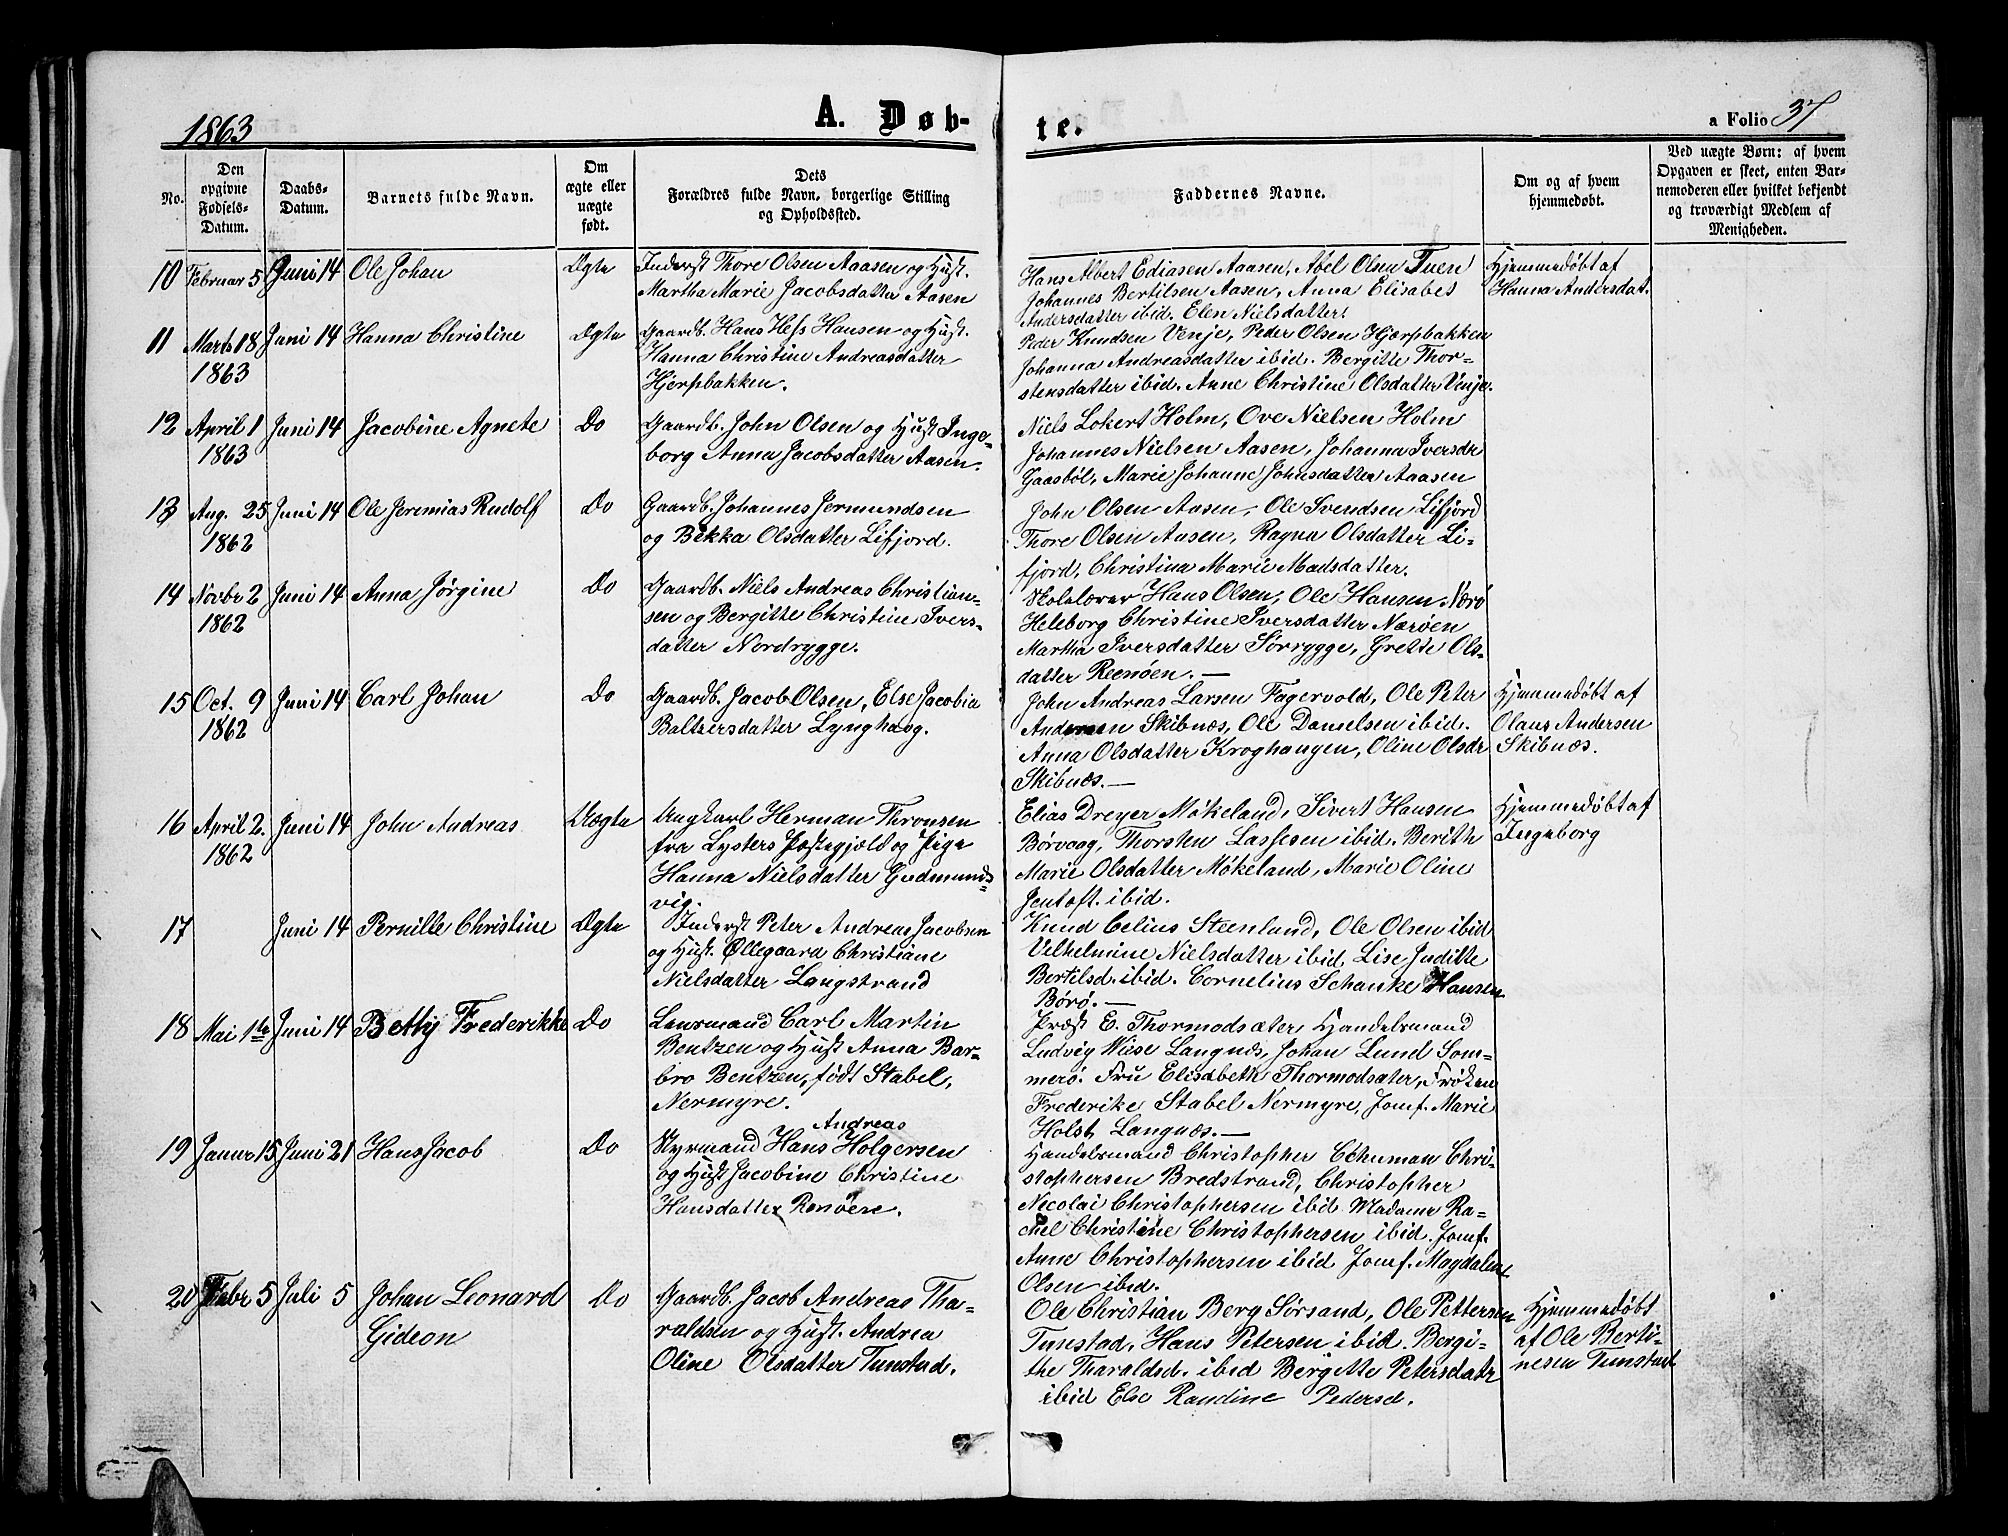 1863
A. Døb-
te.
a Folio 37
No.
Den
opgivne
Fødsels-
Datum.
Daabs-
Datum.
Barnets fulde Navn.
Om
ægte eller
uægte
født.
Dets
Forældres fulde Navn, borgerlige Stilling
og Opholdssted.
Faddernes Navne.
Om og af hvem
hjemmedøbt.
Ved uægte Børn: af hvem
Opgaven er skeet, enten Bar-
nemoderen eller hvilket bekjendt
og troværdigt Medlem af
Menigheden.
10 Februar 5 Juni 14 Ole Johan Ægte
Inderst Thore Olsen Aaasen og Hust.
Martha Marie Jacobsdatter Aasen
Hans Albert Ediasen Aaasen, Abel Olsen Tuen
Johannes Bertilsen Aasen, Anna Elisabet
Andersdatter ibid. Elen Nielsdatter
Hjemmedøbt af
Hanna Andersdat.
11 Marts 18 Juni 14 Hanna Christine Ægte
1863
Gaardb. Hans Hess Hansen og Hust.
Hanna Christine Andreasdatter
Hjerpbakken.
Peder Knudsen Venje, Peder Olsen Hjerpbakken
Johanna Andreasdatter ibid. Bergitte Thor-
stensdatter ibid. Anne Christine Olsdatter Venje.
12 April 1 Juni 14 Jacobine Agnete Do
1863
Gaardb. John Olsen og Hust Inge-
borg Anna Jacobsdatter Aasen.
Niels Lokert Holm, Ove Nielsen Holm
Johannes Nielsen Aasen, Johanna Iversdr
Gaasbøl, Marie Johanne Johnsdatter Aaasen
13 Aug. 25 Juni 14 Ole Jeremias Rudolf Do
1862
Gaardb. Johannes Jermundsen
og Bekka Olsdatter Lifjord.
John Olsen Aasen, Ole Svendsen Lifjord
Thore Olsen Aasen, Ragna Olsdatter Li-
fjord, Christina Marie Madsdatter.
14 Novbr 2 Juni 14 Anna Jørgine Do
1862
Gaardb. Niels Andreas Christian-
sen og Bergitte Christine Ivers-
datter Nordrygge.
Hans Olsen, Ole Hansen Nærø
Heleborg Christine Iversdatter Nærøen
Martha Iversdatter Sørrygge, Grette Ols-
datter Reenøen.
15 Oct. 9 Juni 14 Carl Johan Do
1862
Gaardb. Jacob Olsen, Else Jacobia
Baltzersdatter Lynghaug.
John Andreas Larsen Fagervold, Ole Peter
Andersen Skibnæs, Ole Danielsen ibid.
Anna Olsdatter Kroghaugen, Oline Olsdr
Skibnæs.
Hjemmedøbt af
Olaus Andersen
Skibnæs.
16 April 2. Juni 14 John Andreas Uægte
1862
Ungkarl Herman Thronsen
fra Lysters Præstegjæld og Pige
Hanna Nielsdatter Gudmunds-
vig.
Elias Dreyer Møkeland, Sivert Hansen
Børvaag, Thorsten Lassesen ibid. Berith
Marie Olsdatter Møkeland, Marie Oline
Jentoft ibid.
Hjemmedøbt af
Ingeborg
17 Juni 14 Pernille Christine Ægte
Inderst Peter Andreas Jacobsen
og Hust. Øllegaard Christiane
Nielsdatter Langstrand
Knud Celius Steenland, Ole Olsen ibid
Vilhelmine Nielsdatter ibid Lise Juditte
Bertelsd. ibid. Cornelius Schanke Hansen
Børø.
18 Mai 1ste Juni 14 Betty Frederikke Do
Lensmand Carl Martin
Bentzen og Hust Anna Bar-
bro Bentzen, født Stabel,
Nermyre.
Præst E. Thormodsæter, Handelsmand
Ludvig Wiese Langnæs, Johan Lund Som-
merø. Fru Elisabeth Thormodsæter, Frøken
Frederike Stabel Nermyre, Jomf. Marie
Holst Langnæs.
19 Januar 15 Juni 21 Hans Jacob Do
Andreas
Styrmand Hans Holgersen
og Hust Jacobine Christine
Hansdatter Renøen.
Handelsmand Christopher Schuman Chri-
stophersen Bredstrand, Christopher
Nicolai Christophersen ibid Madame Ra-
chel Christine Christophersen ibid. Jomf.
Anne Christophersen ibid Jomf. Magdalene
Olsen ibid.
20 Febr 5 Juli 5 Johan Leonard Do
Gideon
Gaardb. Jacob Andreas Tha-
raldsen og Hust. Andrea
Oline Olsdatter Tunstad.
Ole Christian Berg Sørsand, Ole Pettersen
Tunstad, Hans Petersen ibid. Bergi-
the Tharaldsd. ibid Bergitte Petersdatr
ibid Else Randine Pedersd.
Hjemmedøbt
af Ole Berti-
nesen Tunstad